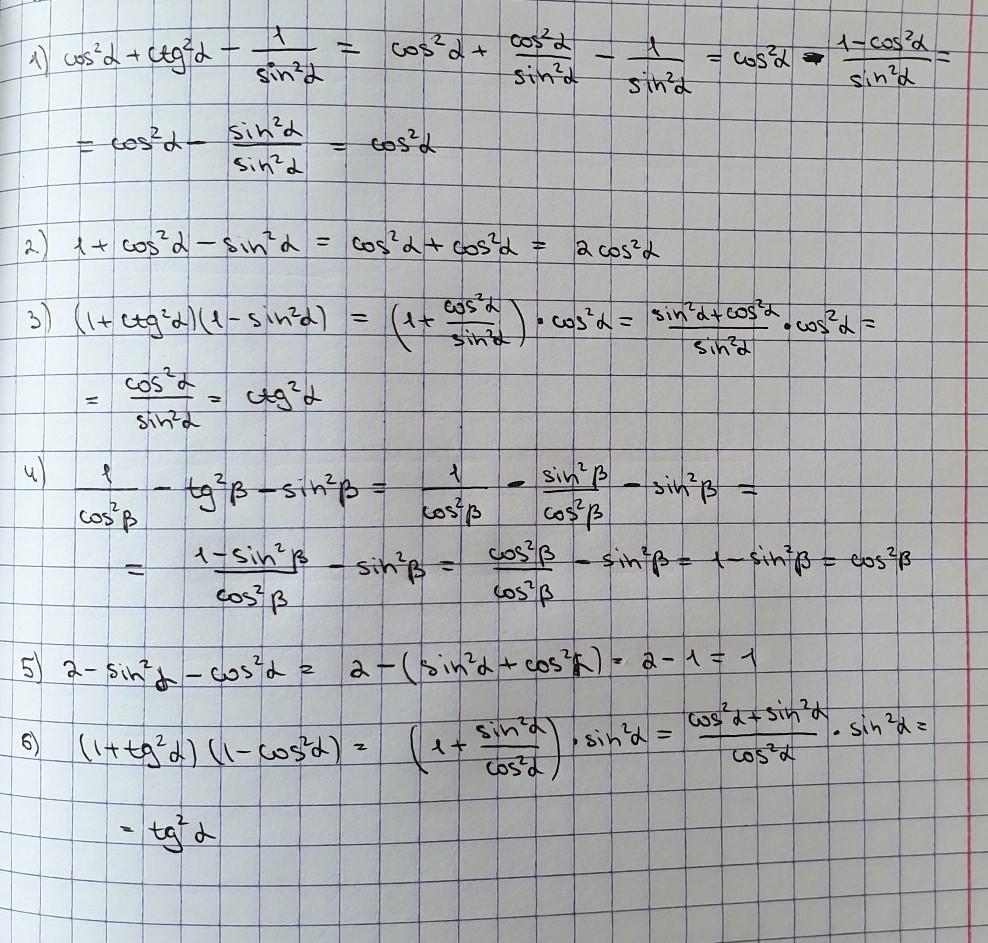 1) cos²α + ctg²α − 1/sin²α = cos²α + cos²α/sin²α − 1/sin²α = cos²α − (1−cos²α)/sin²α =
= cos²α − sin²α/sin²α = cos²α
2) 1 + cos²α − sin²α = cos²α + cos²α = 2cos²α
3) (1+ctg²α)(1−sin²α) = (1 + cos²α/sin²α) · cos²α = (sin²α+cos²α)/sin²α · cos²α =
= cos²α/sin²α = ctg²α
4) 1/cos²β − tg²β − sin²β = 1/cos²β − sin²β/cos²β − sin²β =
= (1−sin²β)/cos²β − sin²β = cos²β/cos²β − sin²β = 1 − sin²β = cos²β
5) 2 − sin²α − cos²α = 2 − (sin²α + cos²α) = 2 − 1 = 1
6) (1+tg²α)(1−cos²α) = (1 + sin²α/cos²α) · sin²α = (cos²α+sin²α)/cos²α · sin²α =
= tg²α